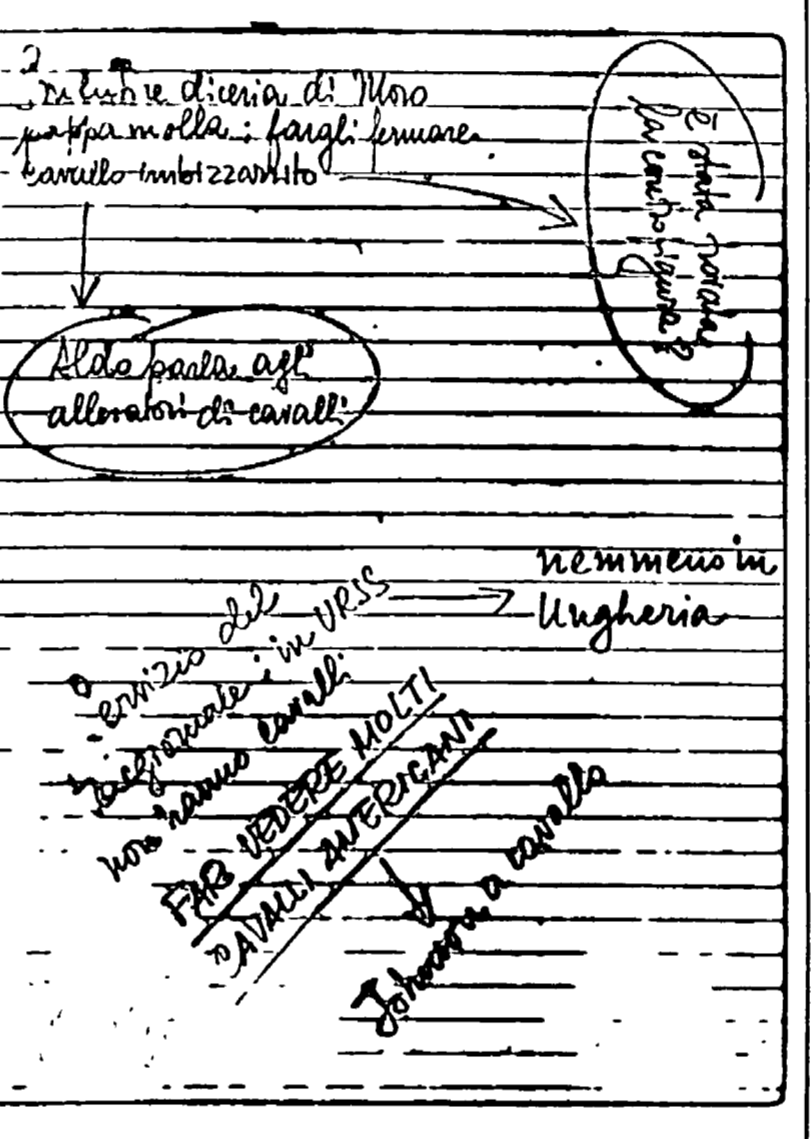 diceria di Moro
pappa molla: fargli fermare
cavallo imbizzarrito
è stata trovata
la controfigura?
Aldo parla agli
allevatori di cavalli
nemmeno in
Ungheria
servizio del
telegiornale: in URSS
non hanno cavalli
FAR VEDERE MOLTI
CAVALLI AMERICANI
Johnson a cavallo